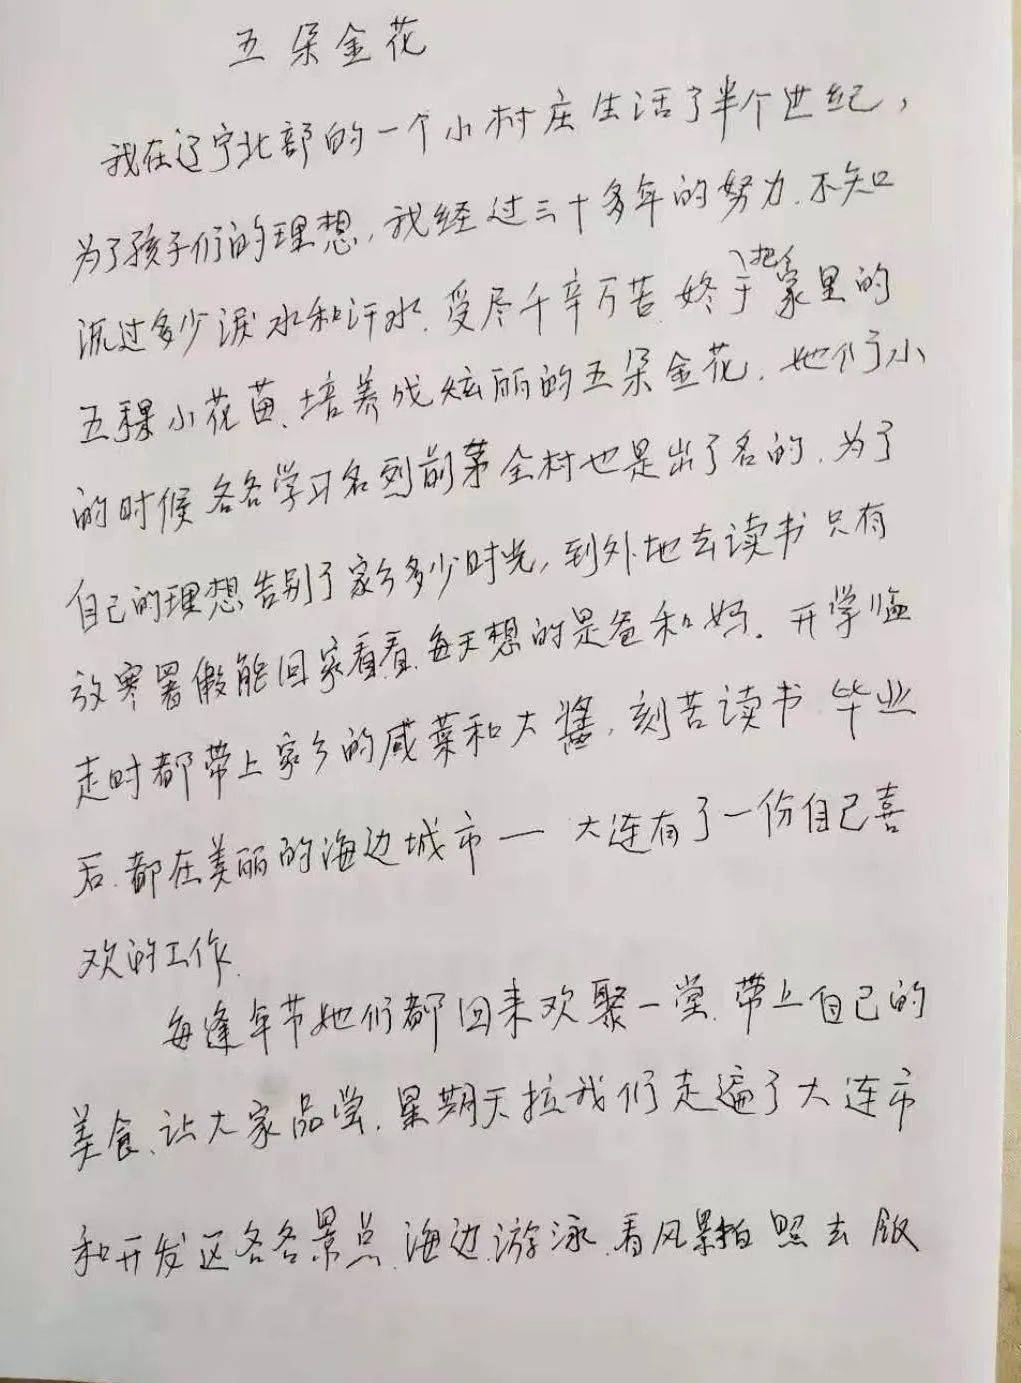 五朵金花
我在辽宁北部的一个小村庄生活了半个世纪，
为了孩子们的理想，我经过三十多年的努力.不知
流过多少泪水和汗水.受尽千辛万苦.终于把家里的
五棵小花苗、培养成炫丽的五朵金花.她们小
的时候各各学习名列前茅全村也是出了名的.为了
自己的理想告别了家乡多少时光,到外地去读书只有
放寒署假能回家看看.每天想的是爸和妈.开学临
走时都带上家乡的咸菜和大酱,刻苦读书.毕业
后.都在美丽的海边城市一大连有了一份自己喜
欢的工作.
每逢年节她们都回来欢聚一堂.带上自己的
美食、让大家品尝.星期天拉我们走遍了大连市
和开发区各各景点.海边.游泳.看风景拍照去饭